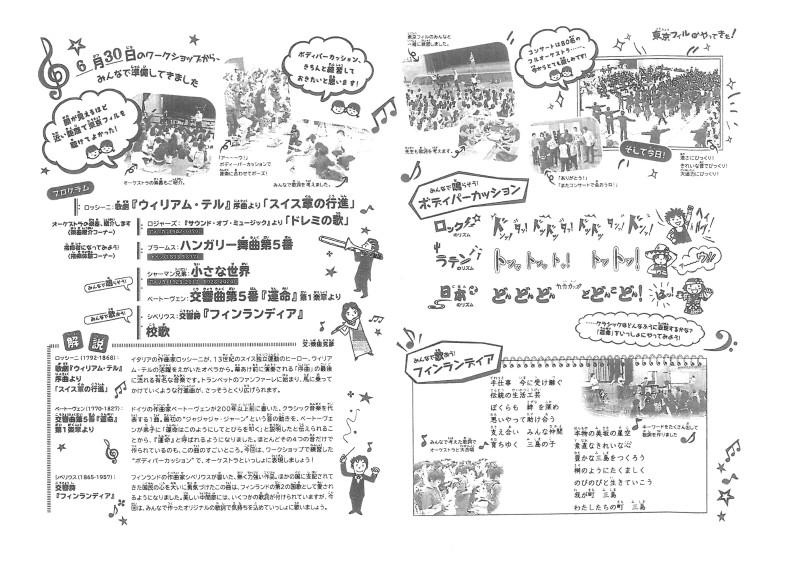 6月30日のワークショップから~
みんなで準備してきました
ボディパーカッション、
きちんと練習して
おきたいと思います!
顔が見えるほど
近い距離で東京フィルを
聴けてよかった!
オーケストラの楽器もご紹介。
「ア~~~ウ!」
ボディパーカッションで
最後に合わせてポーズ!
みんなで歌詞を考えました。
プログラム
ロッシーニ:歌劇『ウィリアム・テル』序曲より「スイス軍の行進」
オーケストラの楽器、紹介します
(楽器紹介コーナー)
ロジャーズ:『サウンド・オブ・ミュージック』より「ドレミの歌」
指揮者になってみよう!
(指揮体験コーナー)
ブラームス:ハンガリー舞曲第5番
みんなで歌おう!
シャーマン兄弟:小さな世界
ベートーヴェン:交響曲第5番『運命』第1楽章より
みんなで歌おう!
シベリウス:交響詩『フィンランディア』
校歌
解説
ロッシーニ(1792-1868):
歌劇『ウィリアム・テル』
序曲より
「スイス軍の行進」
イタリアの作曲家ロッシーニが、13世紀のスイス独立運動のヒーロー、ウィリア
ム・テルの活躍をえがいたオペラから。幕あけ前に演奏される「序曲」の最後
に流れる有名な音楽です。トランペットのファンファーレに始まり、馬に乗って
かけていくような行進曲が、さっそうとくり広げられます。
ベートーヴェン(1770-1827):
交響曲第5番『運命』
第1楽章より
ドイツの作曲家ベートーヴェンが200年以上前に書いた、クラシック音楽を代
表する1曲。最初の“ジャジャジャ・ジャーン”という音の動きを、ベートーヴ
ェンが弟子に「運命はこのようにしてとびらを叩く」と説明したと伝えられるこ
とから、『運命』と呼ばれるようになりました。ほとんどその4つの音だけで
作られているのも、この曲のすごいところ。今回は、ワークショップで練習した
“ボディパーカッション”で、オーケストラといっしょに表現しましょう!
シベリウス(1865-1957):
交響詩
『フィンランディア』
フィンランドの作曲家シベリウスが書いた、熱く力強い作品。ほかの国に支配されて
きた国民の心を大いに勇気づけたこの曲は、フィンランドの第2の国歌として愛され
るようになりました。美しい中間部には、いくつかの歌詞が付けられていますが、今
回は、みんなで作ったオリジナルの歌詞で気持ちを込めていっしょに歌いましょう。
東京フィルのみんなと
一緒に練習しました。
先生も歌詞を考えます。
コンサートは80名の
フルオーケストラ……。
今からとても楽しみです!
東京フィルがやってきた!
「ありがとう!」
「またコンサートで会おうね!」
そして今日!
速さにびっくり!
きれいな音でびっくり!
大迫力にびっくり!
みんなで鳴らそう!
ボディパーカッション
ロックのリズム
ドンッタッ! ドンドンタッ! ドンッタッ! ドンドンタッ!
ラテンのリズム
トンットットンット! トットッ!
日本のリズム
どん どん どん カカカッ どどんどん! はっ!
……クラシックはどんなふうに表現するかな?
「運命」をいっしょにやってみよう!
みんなで歌おう!
フィンランディア
手仕事 今に受け継ぐ
伝統の生活工芸
ぼくらも 絆を深め
思いやって助け合う
支え合い みんな仲間
育ちゆく 三島の子
キーワードをたくさん出して
歌詞を作りました
みんなで考えた歌詞で
オーケストラと大合唱
本物の美坂の星空
素直なきれいな心
豊かな三島をつくろう
桐のようにたくましく
のびのびと生きていこう
我が町 三島
わたしたちの町 三島